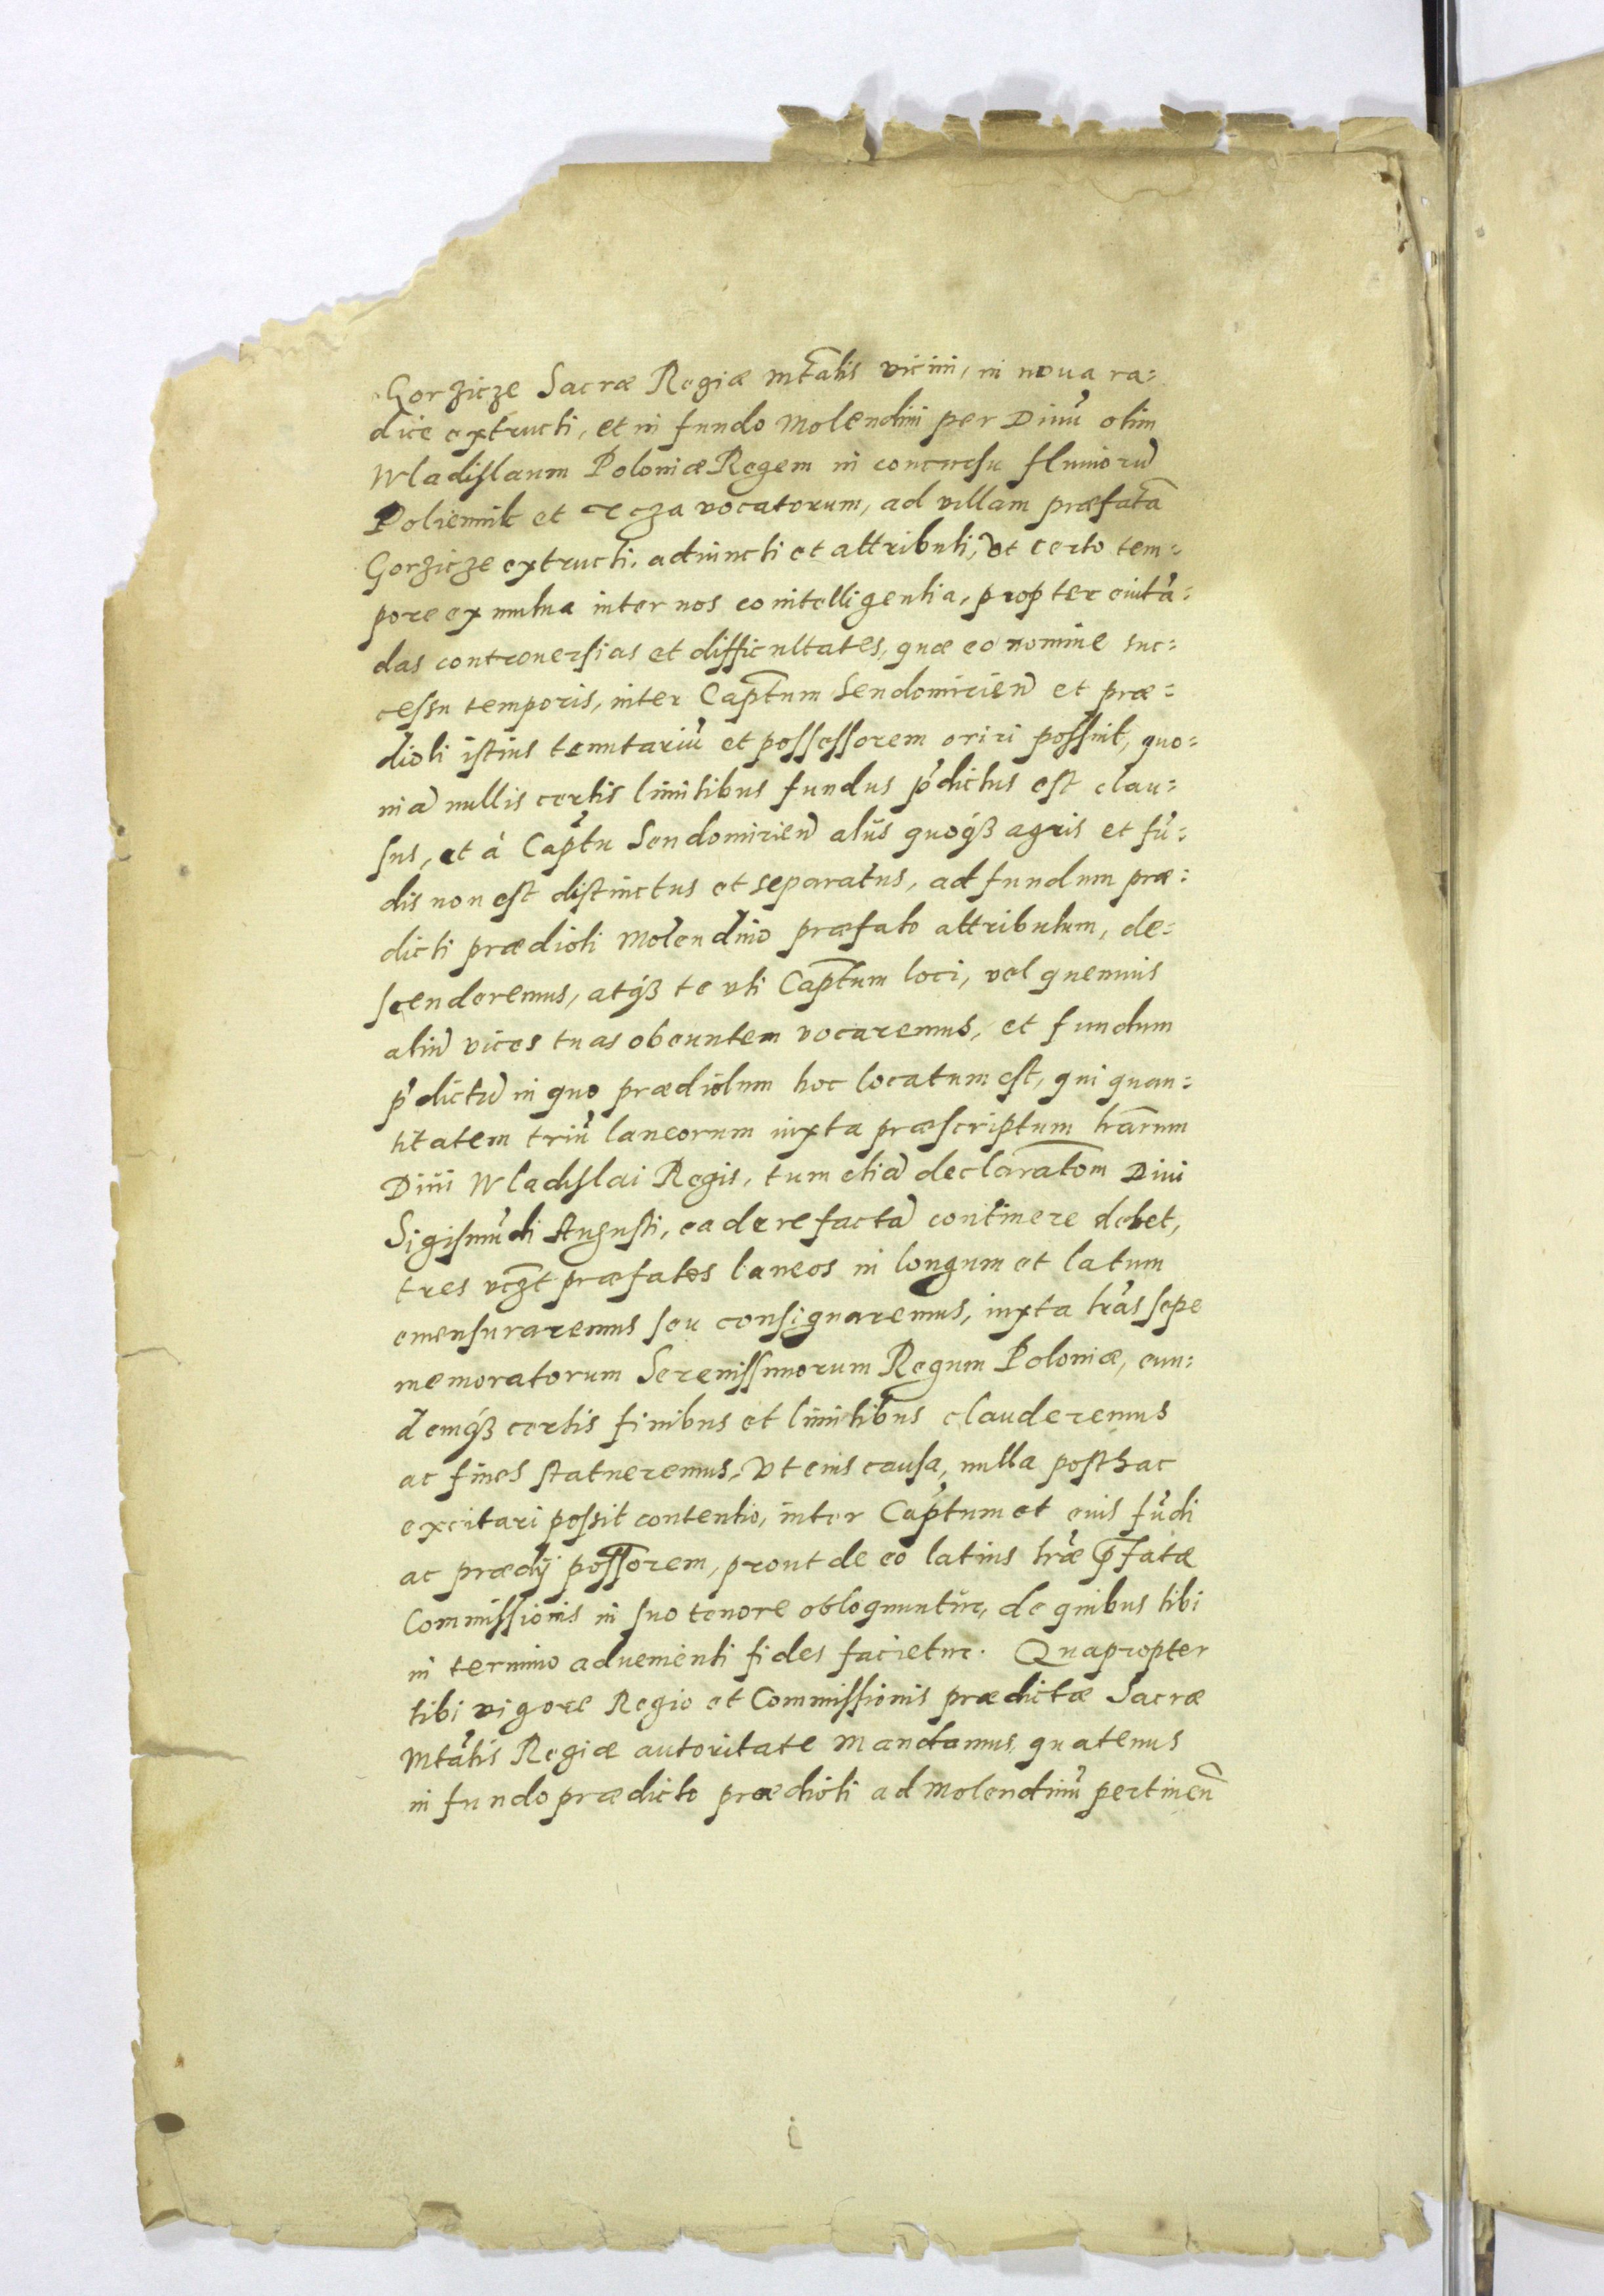 Gorzicze Sacræ Regiæ Mtatis vicini, in noua ra=
dice extructi, et in fundo Molendini per Diuũ olim
Wladislaum Poloniæ Regem in concursu fluuiorũ
Poliennik et vocatorum, ad villam præfatã
Gorzicze extructi, adiuncti et attributi, vt certo tem=
pore ex mutua inter nos cointelligentia, propter euitã=
das controuersias et difficultates, quæ eo nomine suc=
cessu temporis, inter Captum Sendomirien̄ et præ=
dioli istius tenutariũ et possessorem oriri possint, quo=
niã nullis certis limitibus fundus p̃dictus est clau=
sus, et à Captu Sendomirien̄ alijs quoqȝ agris et fũ=
dis non est distinctus et separatus, ad fundum præ=
dicti prædioli Molendino præfato attributum, de=
scenderemus, atqȝ te vti Captum loci, vel quemuis
aliũ vices tuas obeuntem vocaremus, et fundum
p̃dictũ in quo prædiolum hoc locatum est, qui quan=
titatem triũ laneorum iuxta præscriptum lrãrum
Diui Wladislai Regis, tum etiã declaratom̄ Diui
Sigismũdi Augusti, ea de re factã continere debet,
tres vczt præfatos laneos in longum et latum
emensuraremus seu consignaremus, iuxta lrãs sepe
memoratorum Serenissimorum Regum Poloniæ, eun=
demqȝ certis finibus et limitibus clauderemus
ac fines statueremus, Vt eius causa, nulla posthac
excitari possit contentio, inter Captum et euis fũdi
ac prædij possorem, prout de eo latius lræ p̃fatæ
Commissionis in suo tenore obloquuntur, de quibus tibi
in termino aduenienti fides facietur. Quapropter
tibi vigore Regio et Commissionis prædictæ Sacræ
Mtatis Regiæ autoritate Mandamus, quatenus
in fundo prædicto prædioli ad Molendinũ pertinen̄